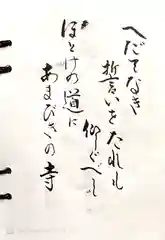 へだてなき
誓いをたれも
仰ぐべし
ほとけの道に
あまびきの寺